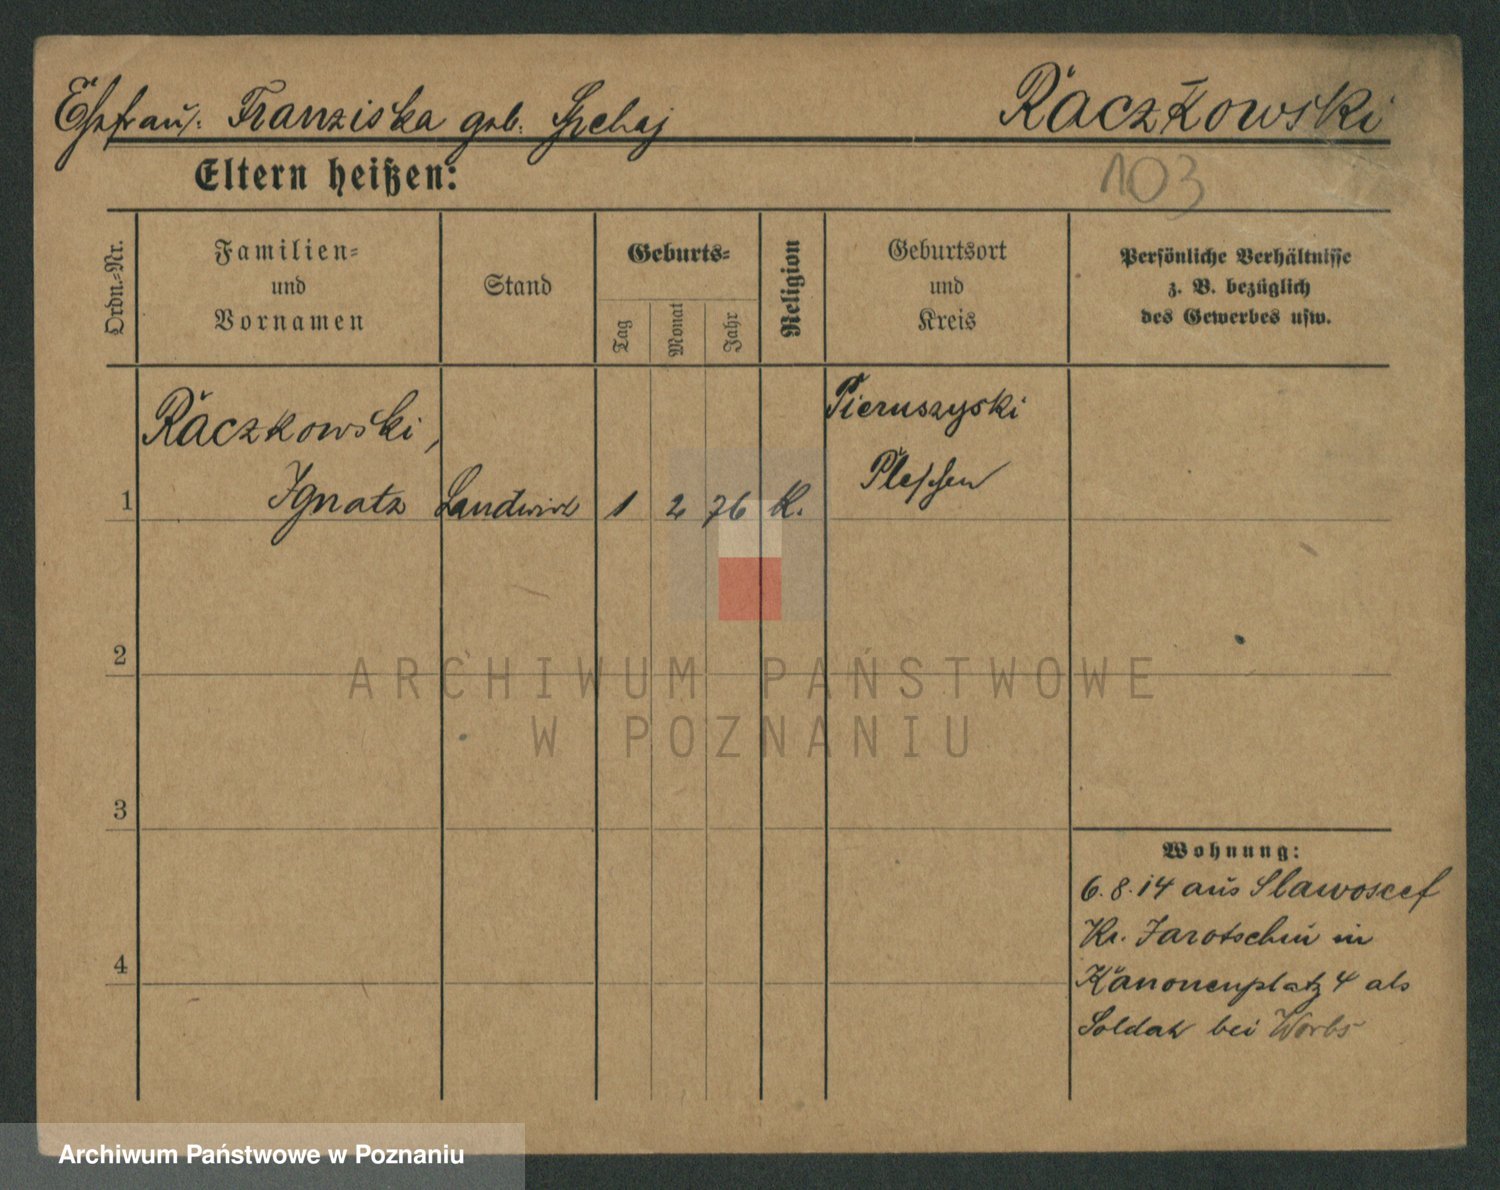 Ehefrau: Franziska geb. Szehaj
Raczkowski
Eltern heißen:
103
Ordn.-Nr.
Familien-
und
Vornamen
Stand
Geburts-
Tag
Monat
Jahr
Religion
Geburtsort
und
Kreis
Persönliche Verhältnisse
z. B. bezüglich
des Gewerbes usw.
Raczkowski,
Pieruszyski
Pleschen
1 Ignatz Landwirt 1 2 76 K.
2
ARCHIWUM PAŃSTWOWE
W POZNANIU
3
Wohnung:
6.8.14 aus
Kr. Jarotschin in
4
Kanonenplatz 4 als
Soldat bei Worbs
Archiwum Państwowe w Poznaniu